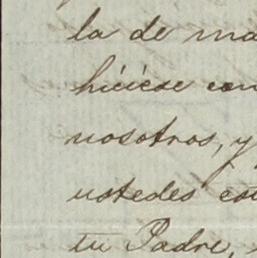 la de ma
hiciese con
nosotros, y
ustedes co
tu Padre,